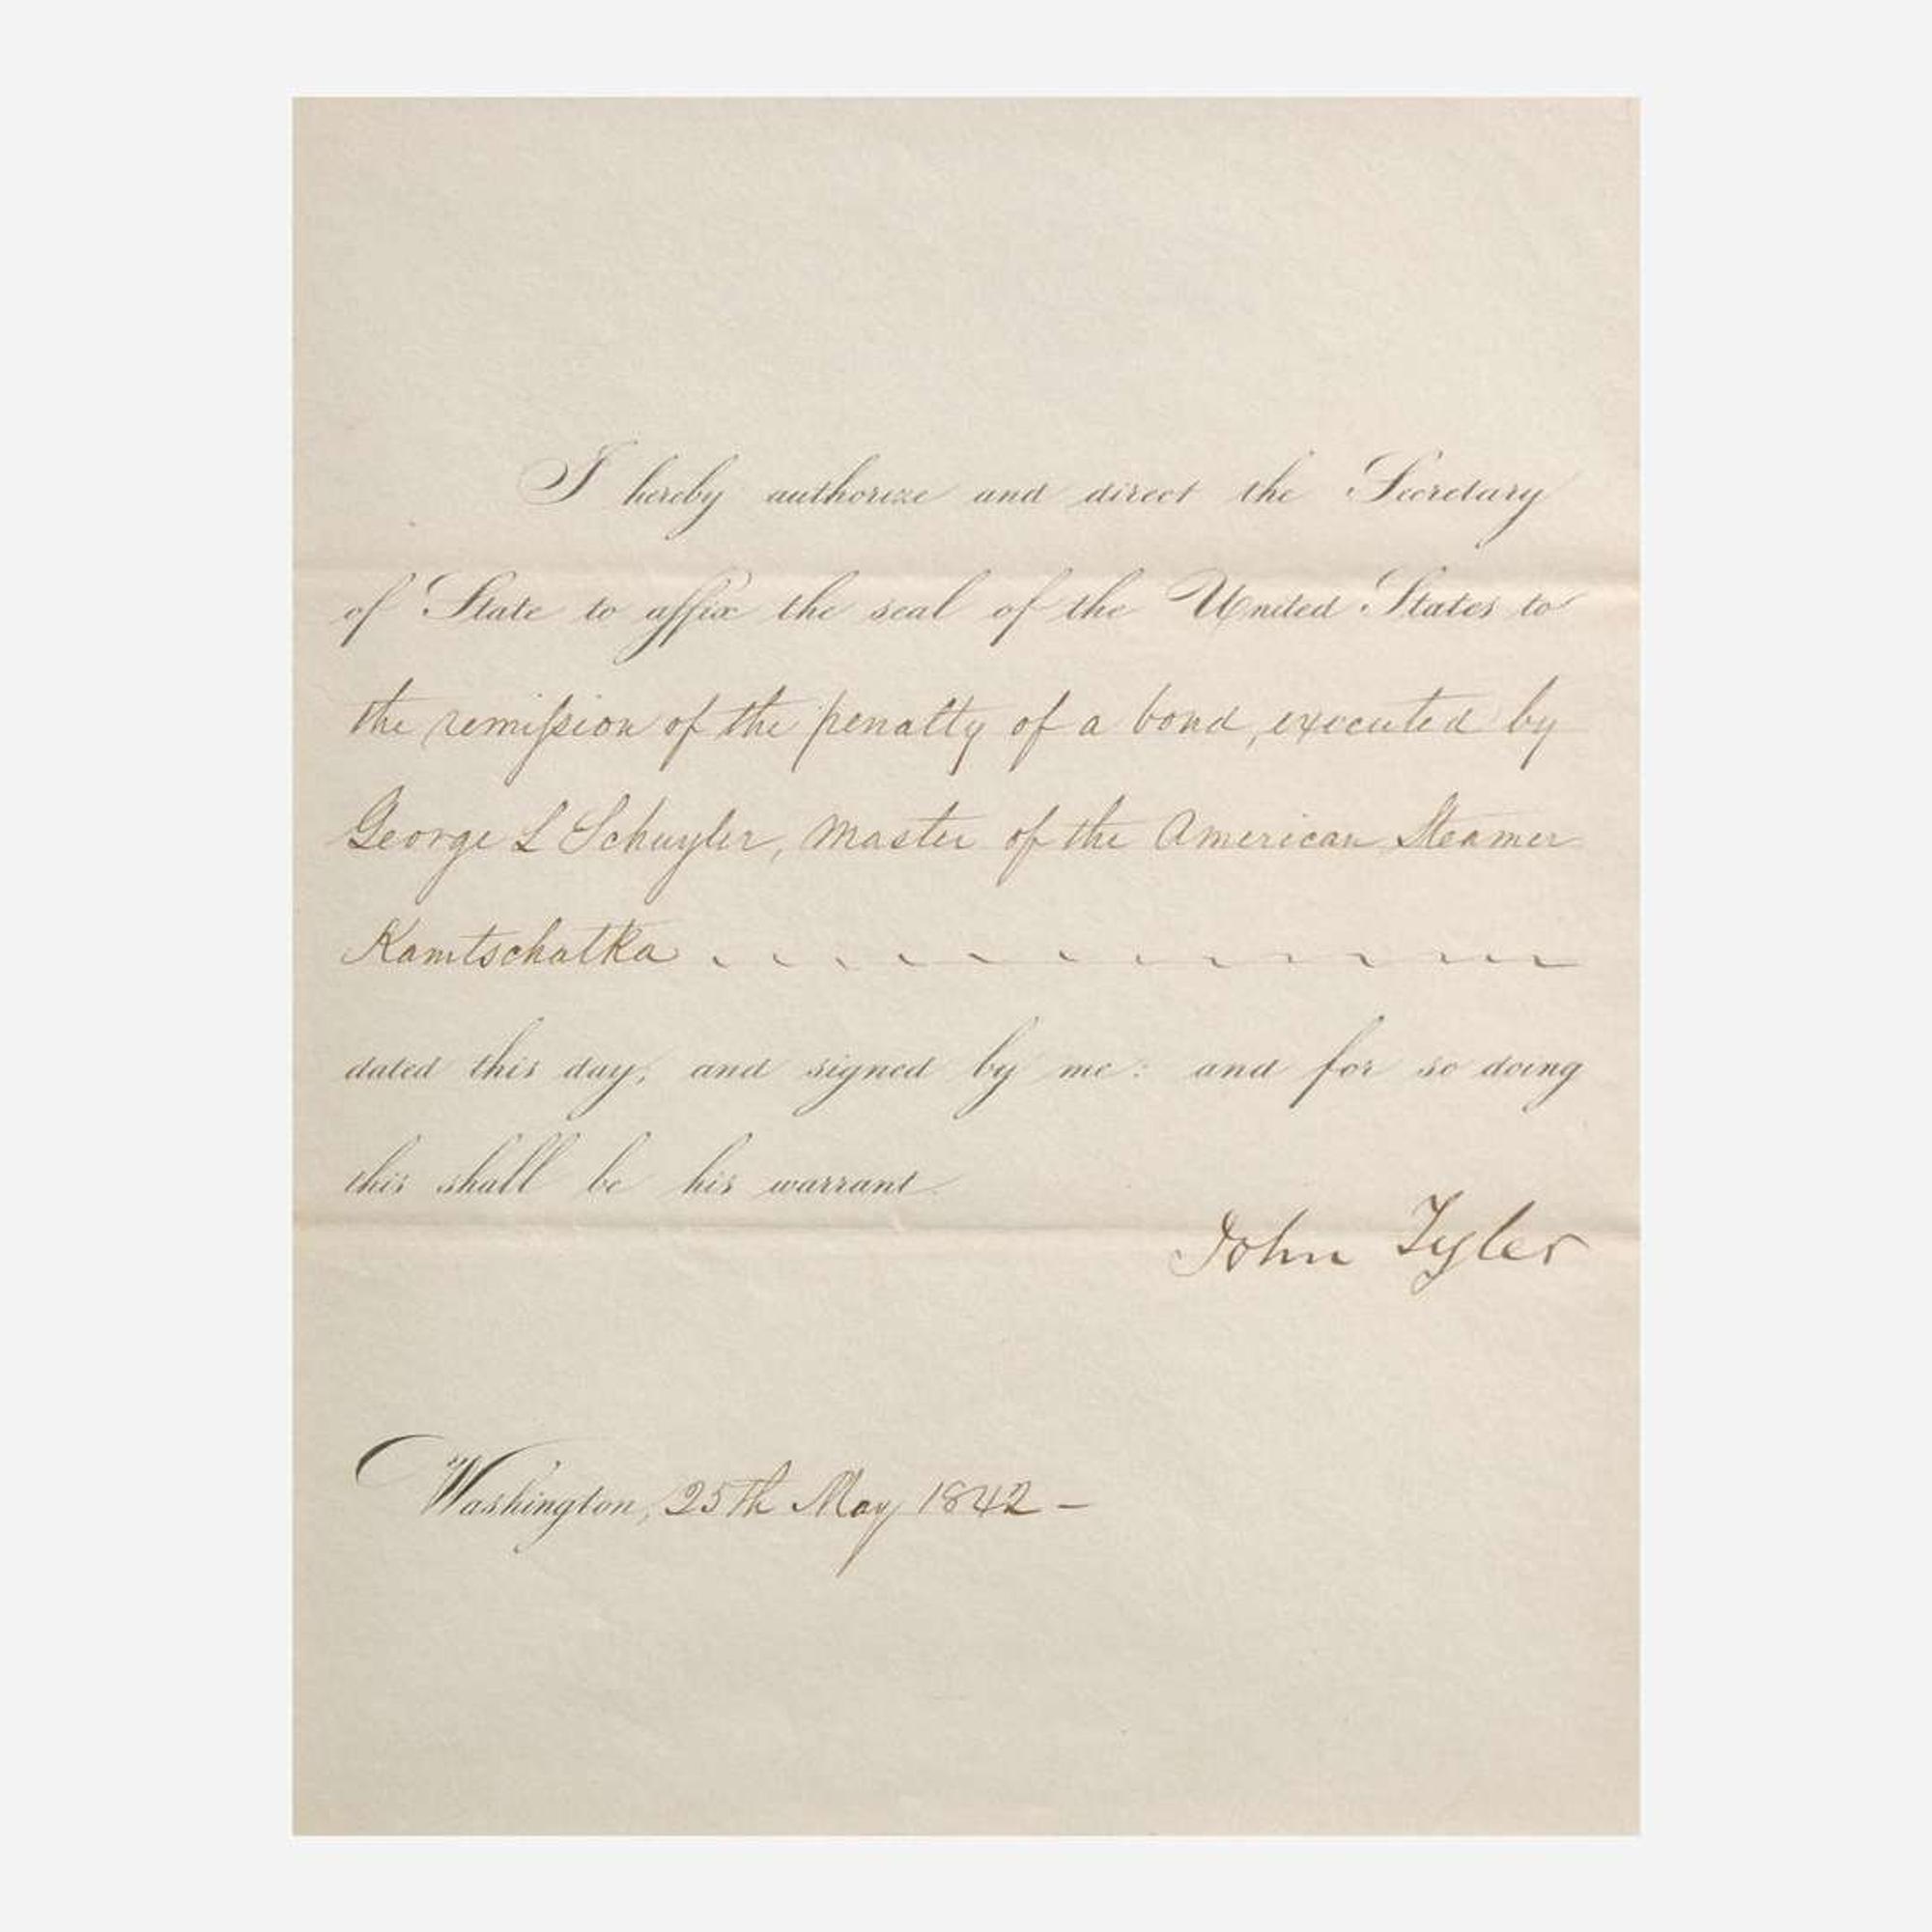 I hereby authorize and direct the Secretary
of State to affix the seal of the United States to
the remiſsion of the penalty of a bond, executed by
George L Schuyler, Master of the American Steamer
Kamtschatka
dated this day, and signed by me: and for so doing
this shall be his warrant.
John Tyler
Washington, 25th May 1842 –